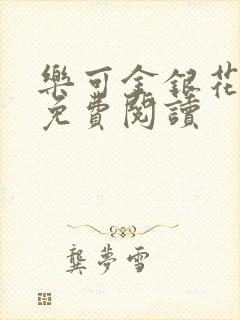 樂可金銀花
免費閱讀
龔夢雪